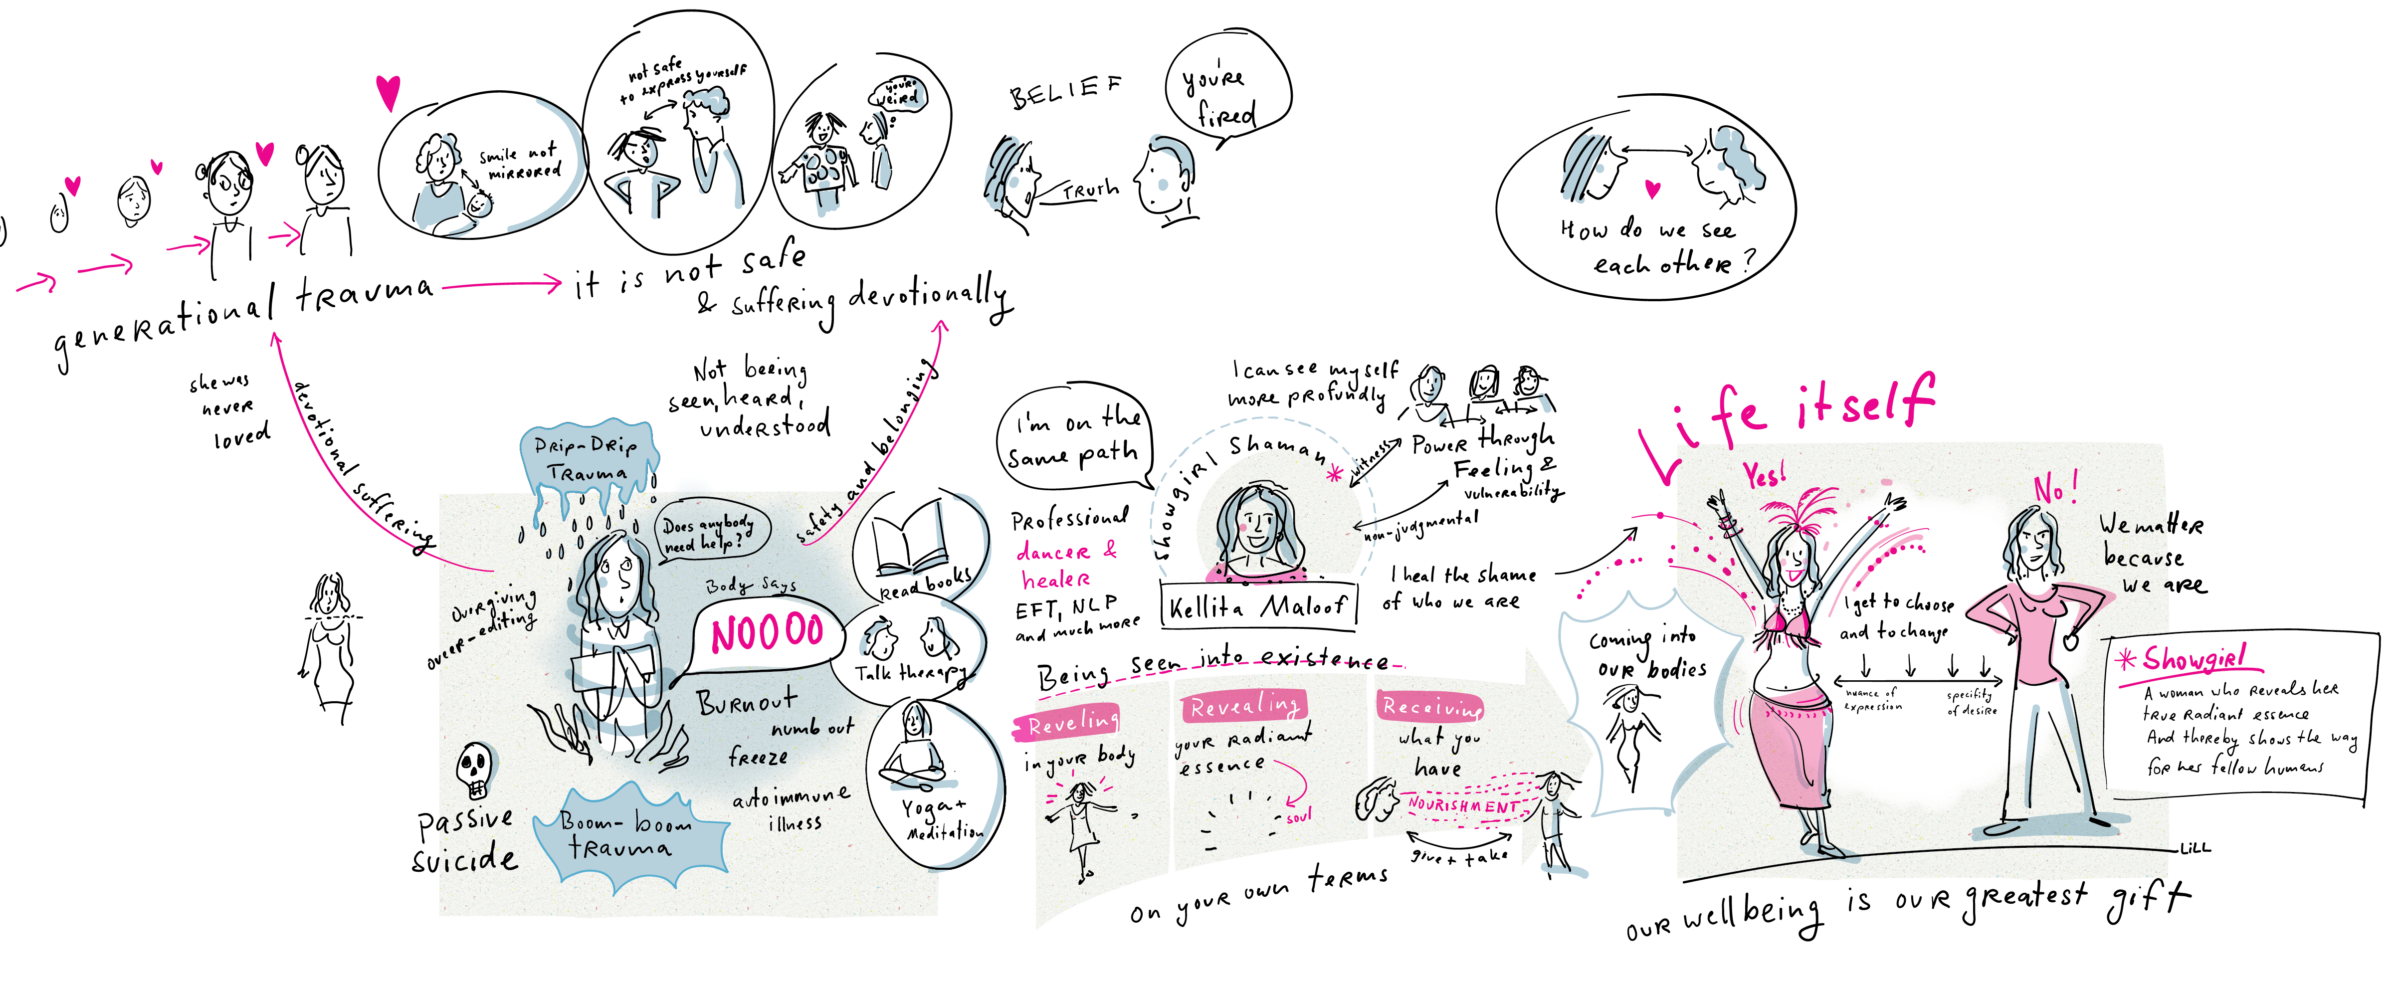 smile not
mirrored
not safe
to express yourself
you're
weird
BELIEF
TRUTH
you're
fired
How do we see
each other?
generational trauma
it is not safe
& suffering devotionally
she was
never
loved
devotional suffering
Not beeing
seen, heard,
understood
safety and belonging
Drip-Drip
Trauma
Does anybody
need help?
overgiving
over-editing
Body says
NOOOO
Read books
Talk therapy
Yoga +
Meditation
Burnout
numb out
freeze
autoimmune
illness
passive
suicide
Boom-boom
trauma
I'm on the
same path
Showgirl Shaman*
I can see myself
more profundly
witness
Power through
Feeling &
vulnerability
non-judgmental
Professional
dancer &
healer
EFT, NLP
and much more
Kellita Maloof
I heal the shame
of who we are
Being seen into existence
Reveling
in your body
Revealing
your radiant
essence
soul
Receiving
what you
have
NOURISHMENT
give + take
on your own terms
coming into
our bodies
Life itself
Yes!
No!
I get to choose
and to change
nuance of
expression
specifity
of desire
We matter
because
we are
* Showgirl
A woman who reveals her
true Radiant essence
And thereby shows the way
for her fellow humans
LiLL
our wellbeing is our greatest gift